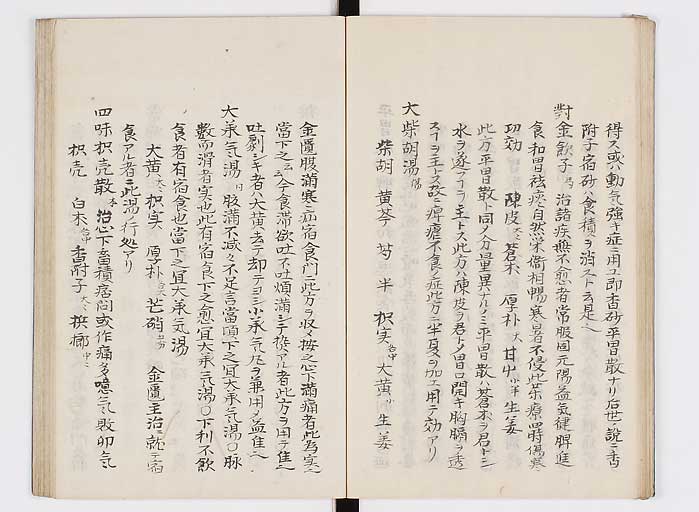 得ス或ハ動気強キ症ニ用ユ即香砂平胃散ナリ后世ノ説ニ香
附子宿砂ハ食積ヲ消スト云是也
對金飲子 治諸疾無不愈者常服固元陽益気健脾進
食和胃祛痰自然栄衛相暢寒暑不侵此药療四時傷寒
功効 陳皮 蒼朮 厚朴 甘草 生姜
此方平胃散ト同ノ分量異ナルノミ平胃散ハ蒼朮ヲ君トシ
水ヲ逐フヿヲ主トス此方ハ陳皮ヲ君トメ胃口開キ胸膈ヲ透
スヿヲ主トス故ニ痺瘧不食ノ症此方ニ半夏ヲ加エ用テ効アリ
大柴胡湯
柴胡 黄芩 芍 半 枳実 大黄 生姜
金匱腹満寒疝宿食門ニ此方ヲ収メ按之心下満痛者此為実也
當下之云々今食滞欲吐不吐煩満シテ塊アル者此方ヲ用テ佳也
吐劇シキ者ハ大黄ヲ去テ却テヨシ小承気丸ヲ兼用メ益佳也
大承気湯 腹満不减々不足言當須下之宜大承気湯〇脉
數而滑者実也此有宿食下之愈宜大承気湯〇下利不飲
食者有宿食也當下之宜大承気湯
大黄 枳実 厚朴 芒硝 金匱主治ニ就テ宿
食アル者ニ此湯ノ行処アリ
四味枳壳散 治心下畜積痞悶或作痛多噫気敗卵気
枳壳 白朮 香附子 梹榔